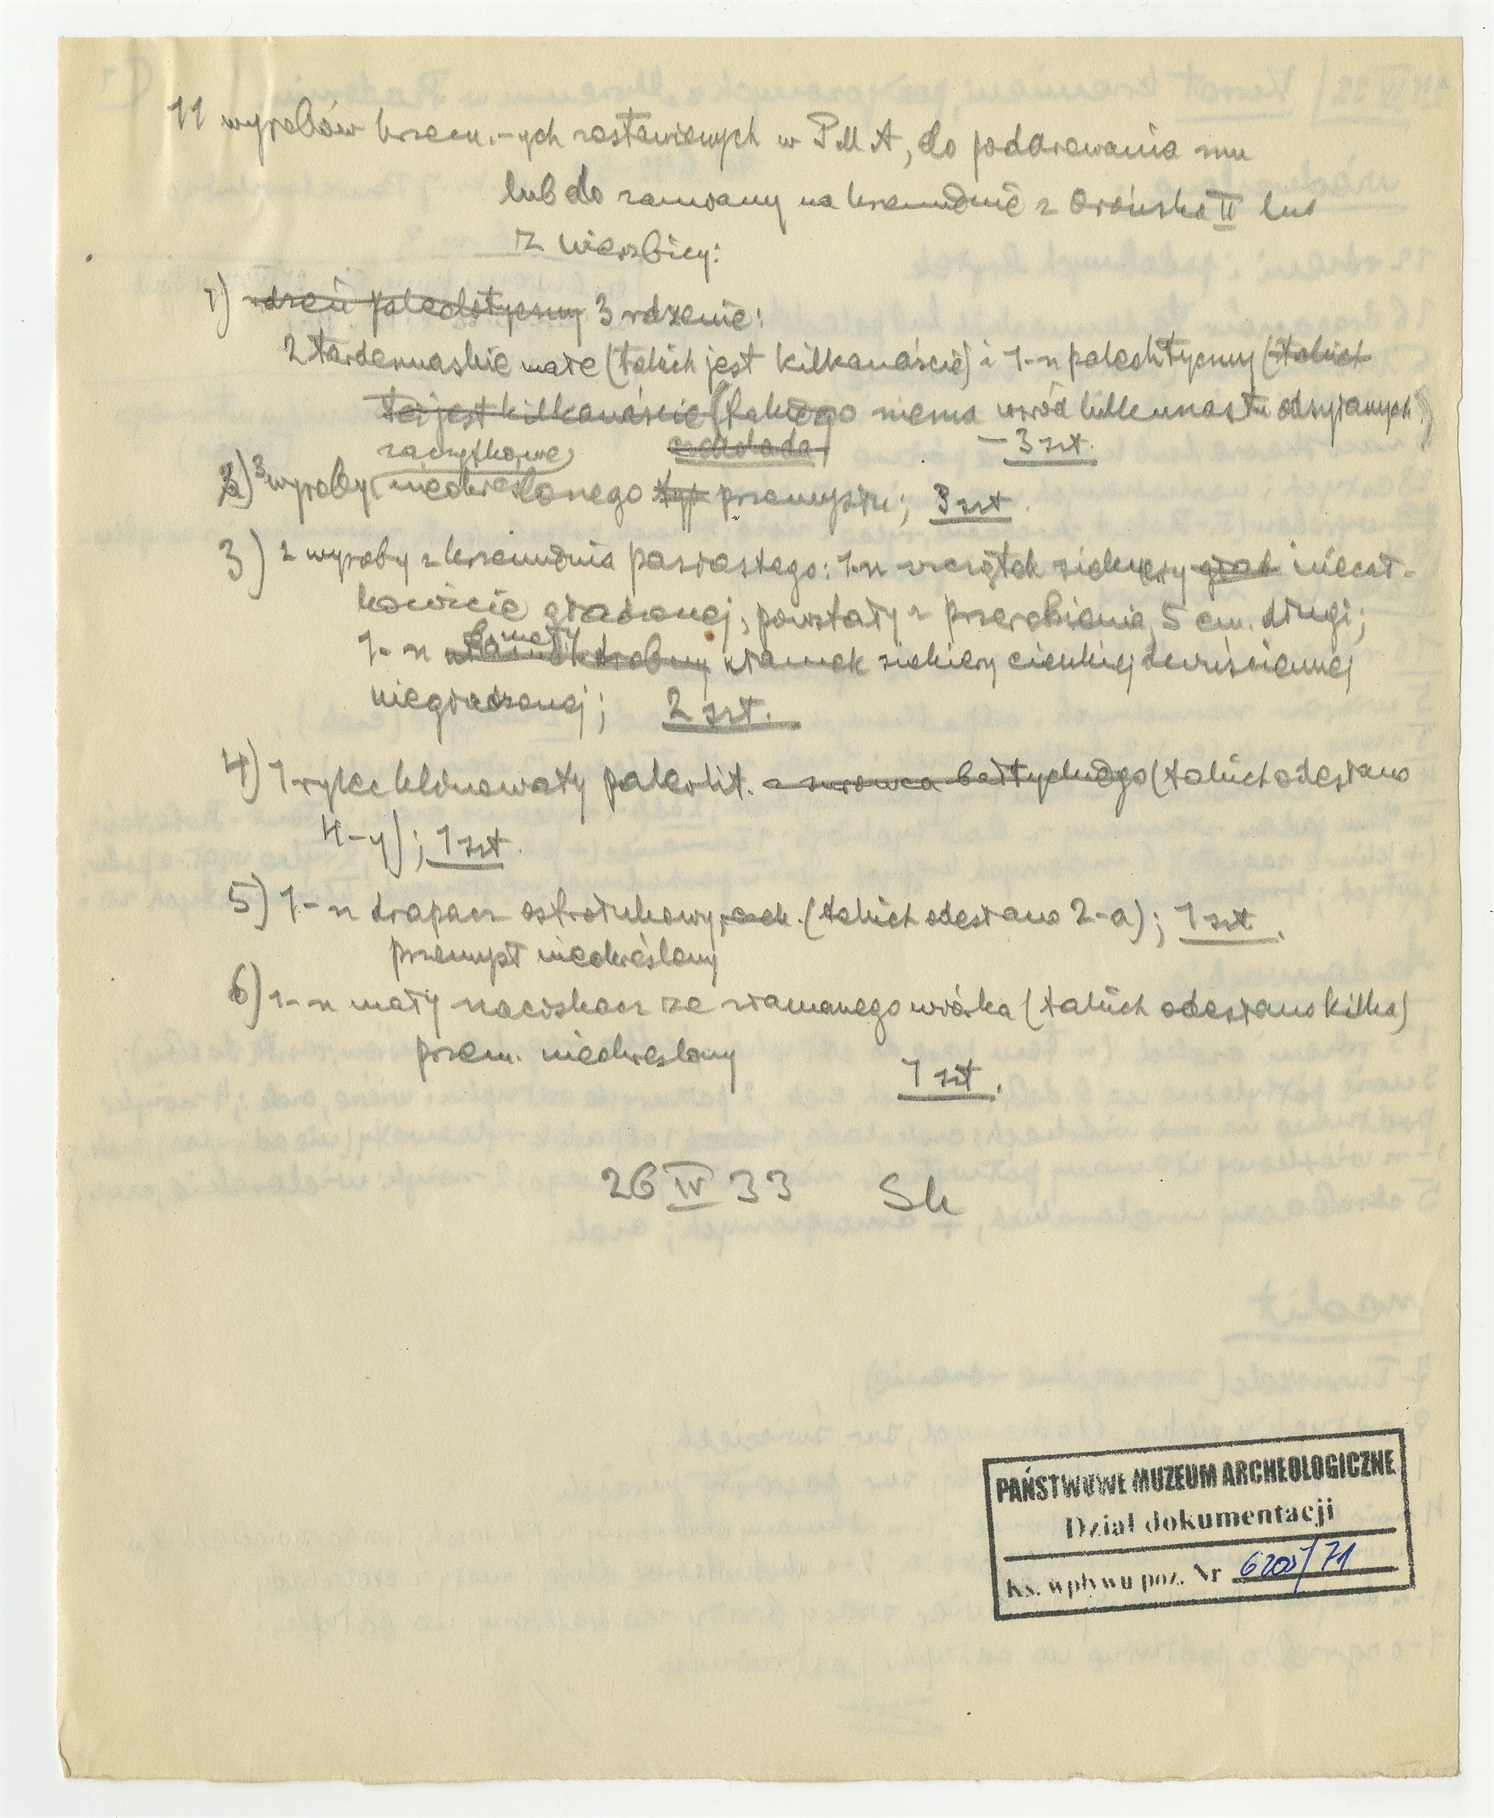 11 wyrobów krzem.-ych zostawionych w PMA, do podarowania mu
lub do zamiany na krzemienie z Orońska II lub
z Wierzbicy:
1) rdzeń paleolityczny 3 rdzenie:
2 tardenuaskie małe (takich jest kilkanaście) i 1-n paleolityczny (takich
też jest kilkanaście (takiego niema wśród kilkunastu odsyłanych)
czekolada - 3 szt.
zaczątkowe
2) 3 wyroby nieokreślonego typ przemysłu; 3 szt.
3) 2 wyroby z krzemienia pasiastego: 1-n szczątek siekiery gład niecał-
kowicie gładzonej, powstały z przerobienia, 5 cm. długi;
mały
1-n drobny ułamek siekiery cienkiej czworościennej
niegładzonej; 2 szt.
4) 1 rylec klinowaty paleolit. z surowca bałtyckiego (takich odesłano
4-y); 1 szt.
5) 1-n drapacz ostrołukowy, czek. (takich odesłano 2-a); 1 szt.
przemysł nieokreślony
6) 1-n mały naciskacz ze złamanego wiórka (takich odesłano kilka)
przem. nieokreślony
1 szt.
26 IV 33 Sk
PAŃSTWOWE MUZEUM ARCHEOLOGICZNE
Dział dokumentacji
Ks. wpływu poz. Nr 6200/71